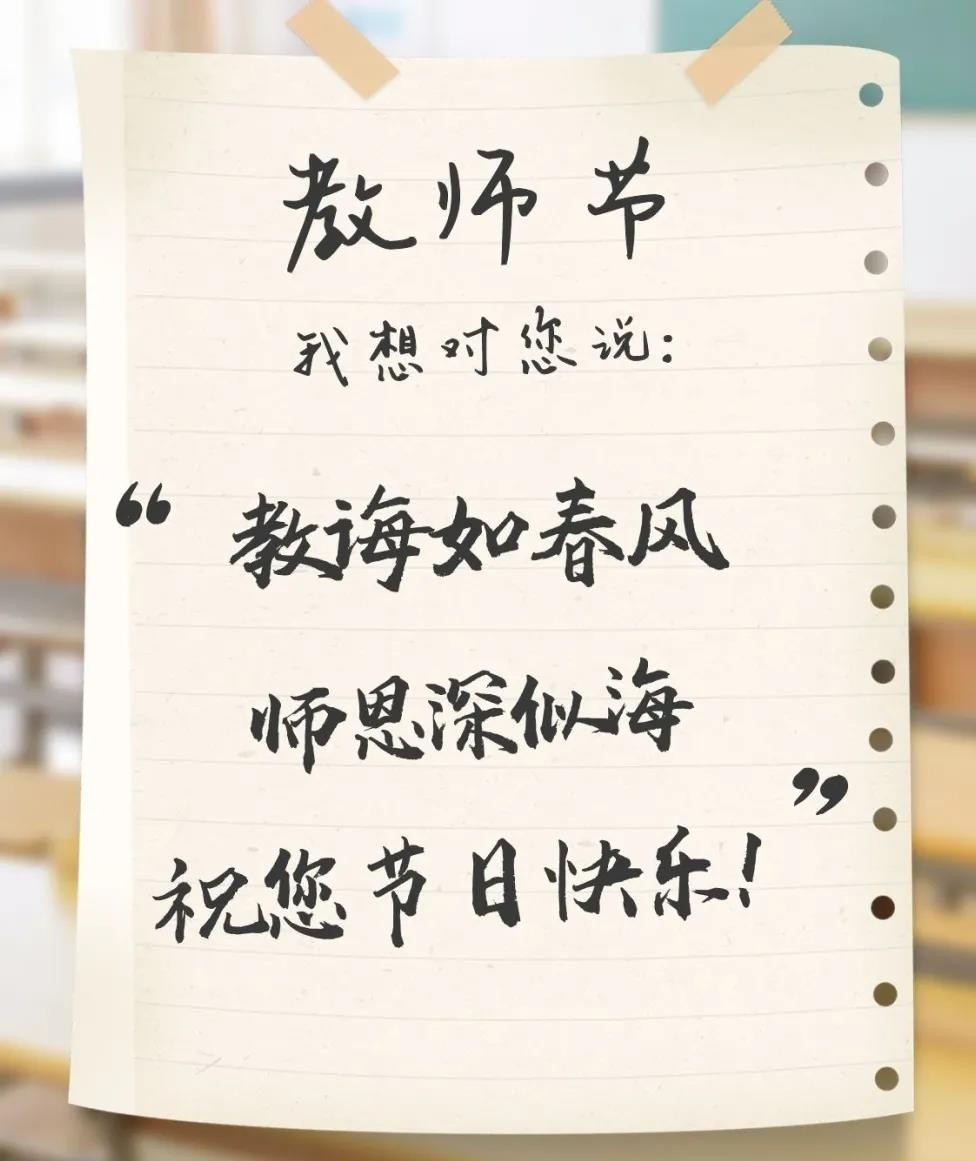 教师节
我想对您说：
“教诲如春风
师恩深似海”
祝您节日快乐！